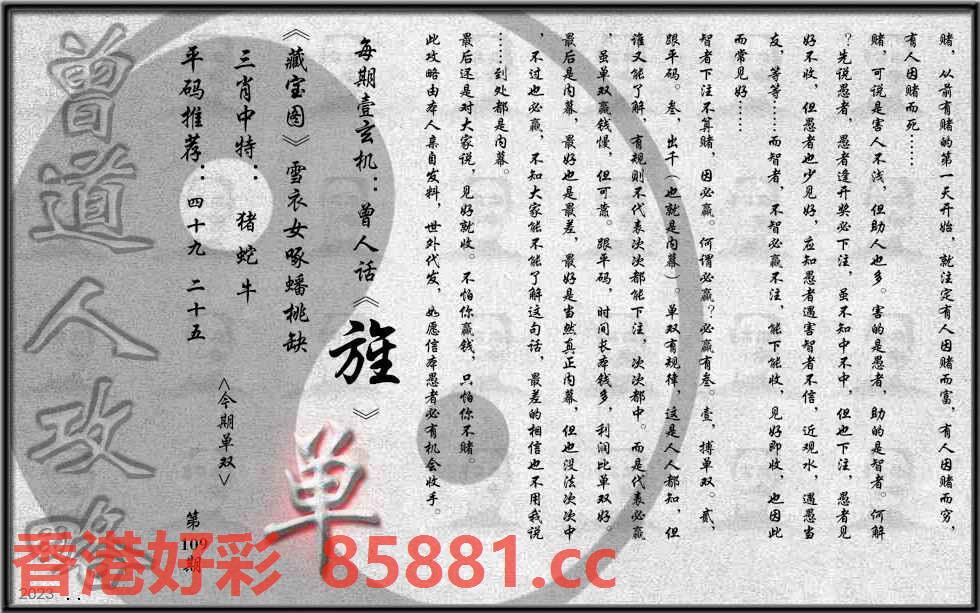 赌，从前有赌的第一天开始，就注定有人因赌而富，有人因赌而穷，
有人因赌而死……
赌，可说是害人不浅，但助人也多。害的是愚者，助的是智者。何解
？先说愚者，愚者逢开奖必下注，虽不知中不中，但也下注，愚者见
好不收，但愚者也少见好，应知愚者遇害智者不信，近观水，遇愚当
友，等等……而智者，不智必赢不注，能下能收，见好即收，也因此
而常见好……
智者下注不算赌，因必赢。何谓必赢？必赢有叁。壹，搏单双。贰，
跟平码。叁，出千（也就是内幕）。单双有规律，这是人人都知，但
谁又能了解，有规则不代表次次都能下注，次次都中。而是代表必赢
，虽单双赢钱慢，但可靠。跟平码，时间长本钱多，利润比单双好。
最后是内幕，最好也是最差，最好是当然真正内幕，但也没法次次中
，不过也必赢，不知大家能不能了解这句话，最差的相信也不用我说
……到处都是内幕。
最后还是对大家说，见好就收。不怕你赢钱，只怕你不赌。
此攻略由本人亲自发料，世外代发，如愿信本愚者必有机会收手。
每期壹玄机：曾人话《旌》
《藏宝图》雪衣女啄蟠桃缺
三肖中特：猪蛇牛
平码推荐：四十九 二十五
<今期单双>
单
第109期
曾道人攻略
香港好彩 85881.cc
2023